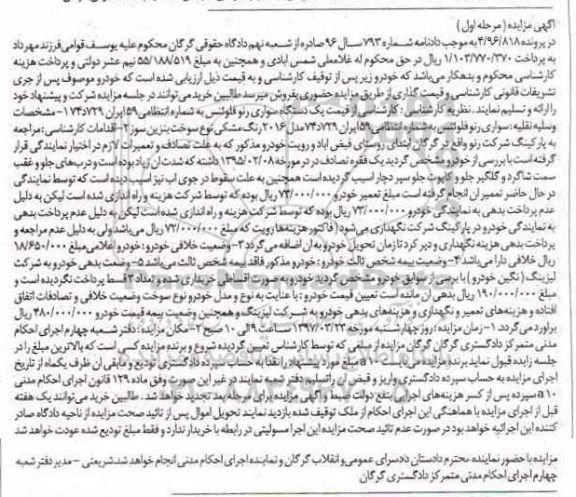 آگهی مزایده ( مرحله اول )
در پرونده ۴/۹۶/۸۱۸ به موجب دادنامه شماره ۷۹۳ سال ۹۶ صادره از شعبه نهم دادگاه حقوقی گرگان محکوم علیه یوسف قوامی فرزند مهرداد
به پرداخت ۱/۱۰۳/۷۷۰/۳۷۰ ریال در حق محکوم له غلامعلی شمس ابادی و همچنین به مبلغ ۵۵/۱۸۸/۵۱۹ نیم عشر دولتی و پرداخت هزینه
کارشناسی محکوم و بدهکار می‌باشد که خودرو زیر پس از توقیف کارشناسی و به قیمت ذیل ارزیابی شده است که خودرو موصوف پس از جری
تشریفات قانونی کارشناسی و قیمت گذاری از طریق مزایده حضوری بفروش میرسد طالبین خرید می توانند در جلسه مزایده شرکت و پیشنهاد خود
را ارائه و تسلیم نمایند . نظریه کارشناسی : کارشناسی از قیمت یک دستگاه سواری رنو فلوئنس به شماره انتظامی ۵۹ ایران ۷۲۹د۷۴ ۱- مشخصات
وسیله نقلیه : سواری رنو فلوئنس به شماره انتظامی ۵۹ ایران ۷۲۹د۷۴ مدل ۲۰۱۶ رنگ مشکی نوع سوخت بنزین سوز ۲- اقدامات کارشناسی : مراجعه
به پارکینگ شرکت رنو واقع در گرگان ابتدای روستای فیض اباد و رویت خودرو مذکور که به علت تصادف و تعمیرات لازم در اختیار نمایندگی قرار
گرفته است با بررسی از خودرو مشخص گردید یک فقره تصادف در مورخه ۱۳۹۵/۰۲/۰۸ داشته که شدت ان زیاد بوده است و درب های جلو و عقب
سمت شاگرد و گلگیر جلو و کاپوت جلو سپر دچار اسیب گردیده است همچنین به علت سقوط در جوی اب نیز اسیب دیده است که توسط نمایندگی
در حال حاضر تعمیر ان انجام گرفته است مبلغ تعمیر خودرو ۷۳/۰۰۰/۰۰۰ ریال بوده که توسط شرکت هزینه و راه اندازی شده است لیکن به دلیل
عدم پرداخت بدهی به نمایندگی خودرو ۷۳/۰۰۰/۰۰۰ ریال بوده که توسط شرکت هزینه و راه اندازی شده است لیکن به دلیل عدم پرداخت بدهی
به نمایندگی خودرو در پارکینگ شرکت نگهداری می‌شود ( فاکتور هزینه‌ها رویت که مبلغ ۷۲/۰۰۰/۰۰۰ ریال می‌باشد ولی به دلیل عدم مراجعه و
پرداخت بدهی هزینه نگهداری و دیر کرد تا زمان تحویل خودرو به ان اضافه می گردد ۳- وضعیت خلافی خودرو : خودرو اعلامی مبلغ ۱۸/۶۵۰/۰۰۰
ریال خلافی دارا می‌باشد ۴- وضعیت بیمه شخص ثالث خودرو : خودرو مذکور فاقد بیمه شخص ثالث می باشد ۵- وضعیت بدهی خودرو به شرکت
لیزینگ ( نگین خودرو ) با بررسی از سوابق خودرو مشخص گردید خودرو به صورت اقساطی خریداری شده و تعداد ۴ قسط پرداخت نگردیده است و
مبلغ ۱۹۰/۰۰۰/۰۰۰ ریال بدهی ان مانده است تعیین قیمت خودرو : با عنایت به نوع و مدل خودرو نوع سوخت وضعیت خلافی و تصادفات اتفاق
افتاده و هزینه‌های تعمیر و نگهداری و هزینه‌های بدهی خودرو به شرکت لیزینگ و همچنین وضعیت بیمه قیمت خودرو ۴۸۰/۰۰۰/۰۰۰ ریال
براورد می گردد. ۱- زمان مزایده : روز چهارشنبه مورخه ۱۳۹۷/۰۳/۲۳ ساعت ۹ الی ۱۰ صبح ۲- مکان مزایده : دفتر شعبه چهارم اجرای احکام
مدنی متمرکز دادگستری گرگان گرگان مزایده از مبلغی که توسط کارشناس تعیین گردیده شروع و برنده مزایده کسی است که بالاترین مبلغ را در
جلسه زایده قبول نماید برنده مزایده می‌بایست ۱۰٪ مبلغ مورد پیشنهاد را نقدا به حساب سپرده دادگستری تودیع و مابقی ان ظرف یکماه از تاریخ
اجرای مزایده به حساب سپرده دادگستری واریز و قبض ان را تسلیم دفتر شعبه نمایند در غیر این صورت وفق ماده ۱۲۹ قانون اجرای احکام مدنی
۱۰a سپرده پس از کسر هزینه‌های اجرایی بنفع دولت ضبط و آگهی مزایده برای مرحله بعد تجدید خواهد شد . طالبین خرید می توانند یک هفته
قبل از اجرای مزایده با هماهنگی این اجرای احکام از ملک توقیف شده بازدید نمایند تحویل اموال پس از تائید صحت مزایده از ناحیه دادگاه صادر
کننده این اجرائیه خواهد بود در صورت عدم تائید صحت مزایده این اجرا مسولیتی در رابطه با خریدار ندارد و فقط مبلغ تودیع شده عودت خواهد شد
مزایده با حضور نماینده محترم دادستان دادسرای عمومی و انقلاب گرگان و نماینده اجرای احکام مدنی انجام خواهد شد. شریعتی - مدیر دفتر شعبه
چهارم اجرای احکام مدنی متمرکز دادگستری گرگان